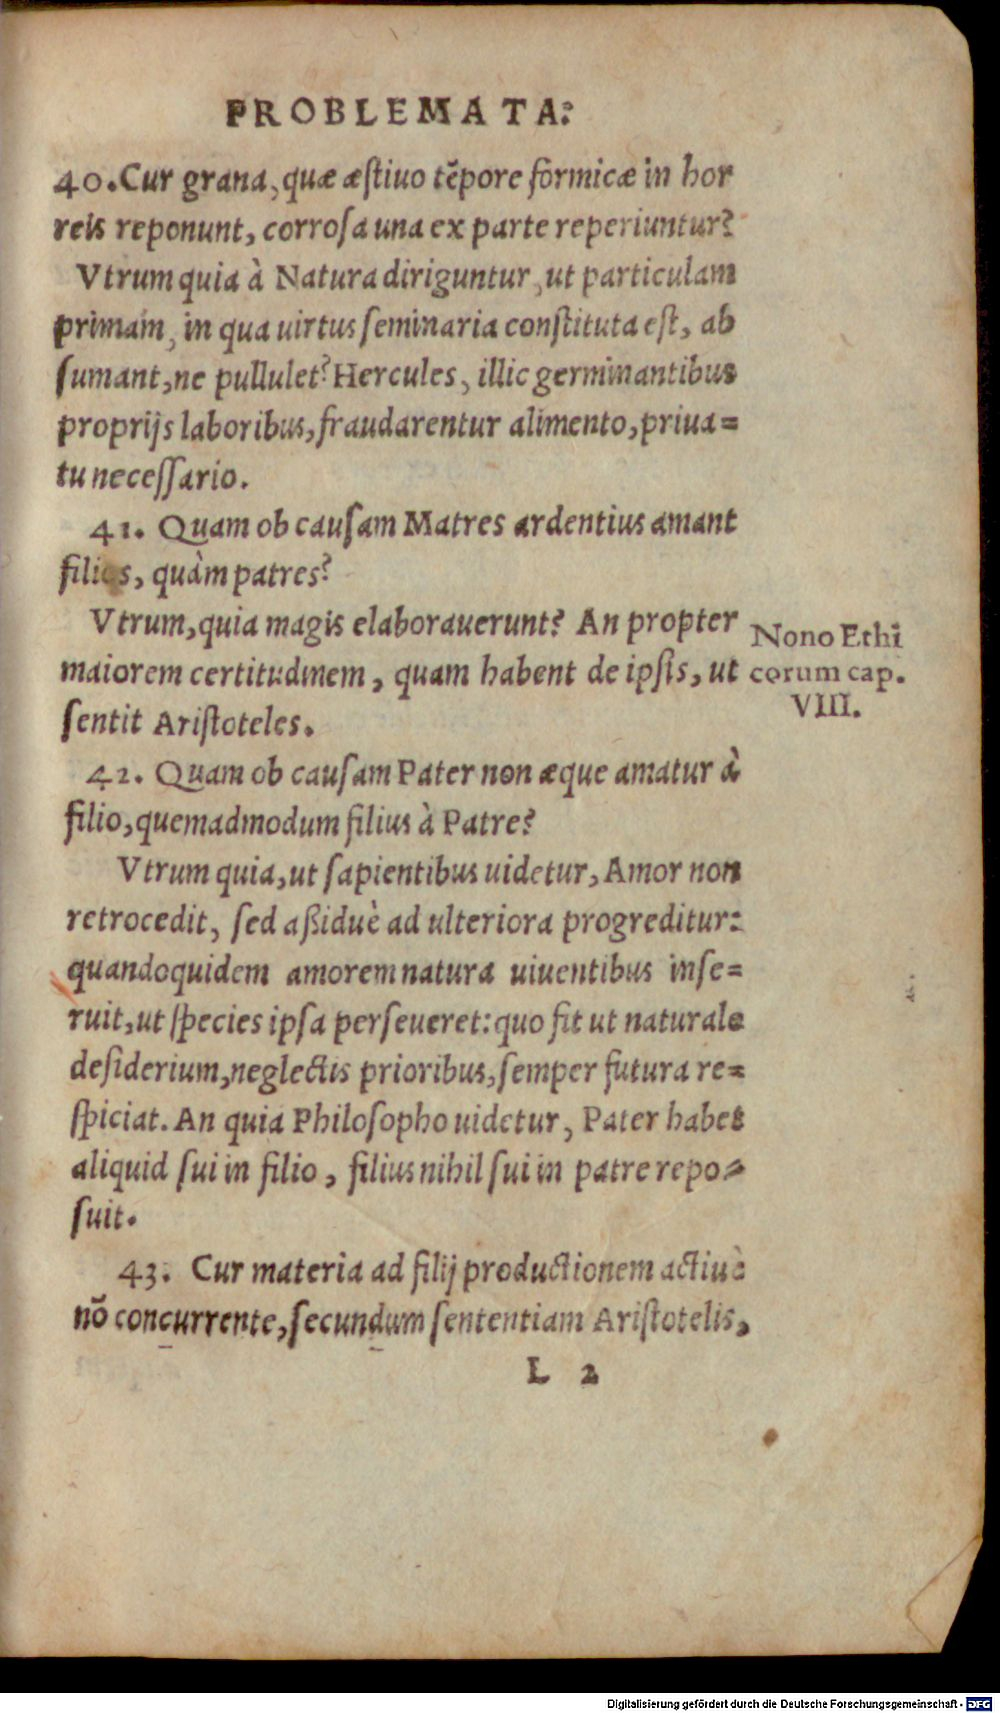 PROBLEMATA:
40. Cur grana, quæ æſtiuo tẽpore formicæ in hor
reis reponunt, corroſa una ex parte reperiuntur?
Vtrum quia à Natura diriguntur, ut particulam
primam, in qua uirtus ſeminaria conſtituta eſt, ab
ſumant, ne pullulet? Hercules, illic germinantibus
proprijs laboribus, fraudarentur alimento, priua=
tu neceſſario.
41. Quam ob cauſam Matres ardentius amant
filios, quàm patres?
Vtrum, quia magis elaborauerunt? An propter
maiorem certitudinem, quam habent de ipſis, ut
ſentit Ariſtoteles.
Nono Ethi
corum cap.
VIII.
42. Quam ob cauſam Pater non æque amatur à
filio, quemadmodum filius à Patre?
Vtrum quia, ut ſapientibus uidetur, Amor non
retrocedit, ſed aßiduè ad ulteriora progreditur:
quandoquidem amorem natura uiuentibus inſe=
ruit, ut ſpecies ipſa perſeueret: quo fit ut naturale
deſiderium, neglectis prioribus, ſemper futura re=
ſpiciat. An quia Philoſopho uidetur, Pater habet
aliquid ſui in filio, filius nihil ſui in patre repo=
ſuit.
43. Cur materia ad filij productionem actiuè
nõ concurrente, ſecundum ſententiam Ariſtotelis,
L 2
Digitalisierung gefördert durch die Deutsche Forschungsgemeinschaft - DFG